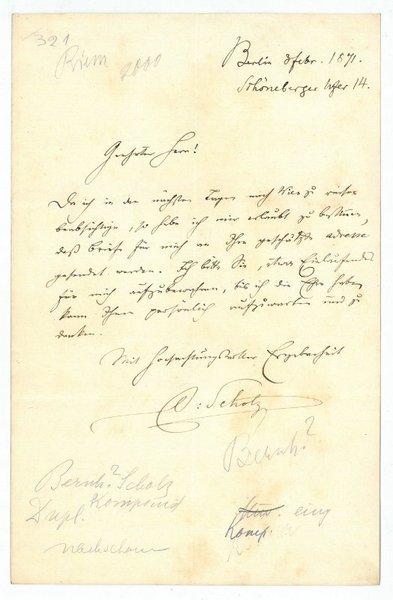 321
Riem 2000
Berlin 3 Febr. 1871.
Schöneberger Ufer 14.
Geehrter Herr!
Da ich in den nächsten Tagen nach zu reisen
beabsichtige, so habe ich mir erlaubt zu bestimmen,
daß Briefe für mich an Ihre geschätzte Adresse
gesendet werden. Ich bitte Sie, etwa Einlaufendes
für mich aufzubewahren, bis ich die Ehre haben
kann Ihnen persönlich aufzuwarten und zu
danken.
Mit hochachtungsvoller Ergebenheit
Scholz
Bernh?
Bernh? Scholz
Dupl. Komponist
nachschauen
Komp.